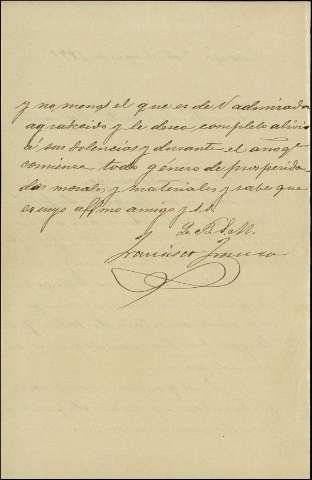 y no menos el que es de V admirador
agradecido y le desea completo alivio
á sus dolencias y durante el año q.
comienza todo género de prosperida-
des morales y materiales y sabe que
es suyo affmo amigo y s.s.
Q.B.S.M.
Francisco